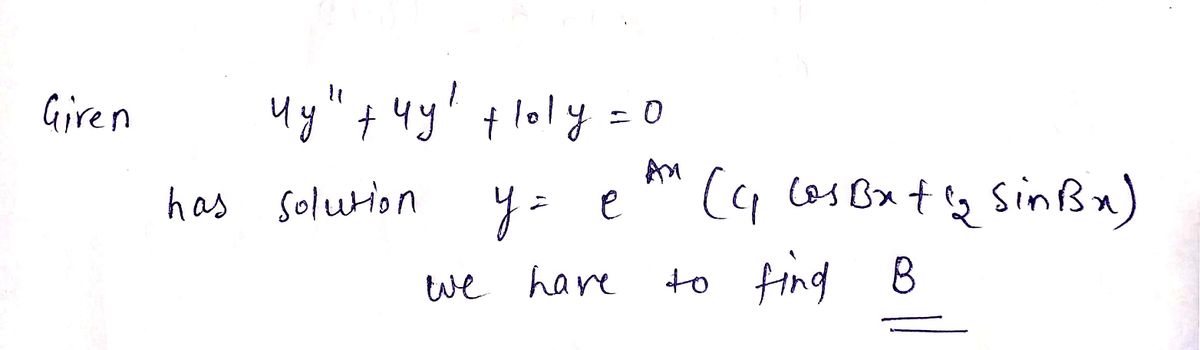 Given 4y" + 4y' + 101y = 0
has solution y = e^{Ax} (c₁ cos Bx + c₂ sin Bx)
we have to find B